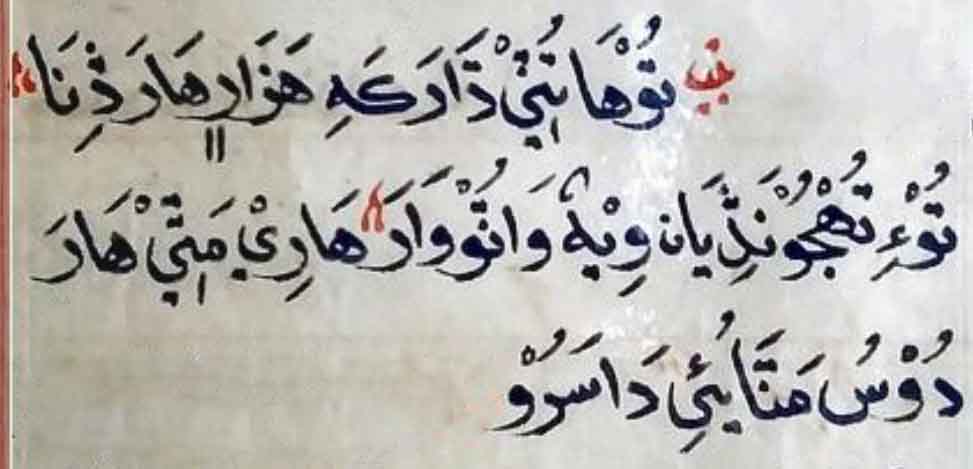 تُوْهَا تِيْ ڎَارَ كَهِ هَزَارٍ هَارَ ڎِنَا
تُوْءِ تُهْجُوْ نَڎِّيَان وِيْهٗ وَاتُوْوَارَ هَارِيْ مَتِيْ هَارَ
دُوْسُ مَتَّا يُئِي دَاسَرُو